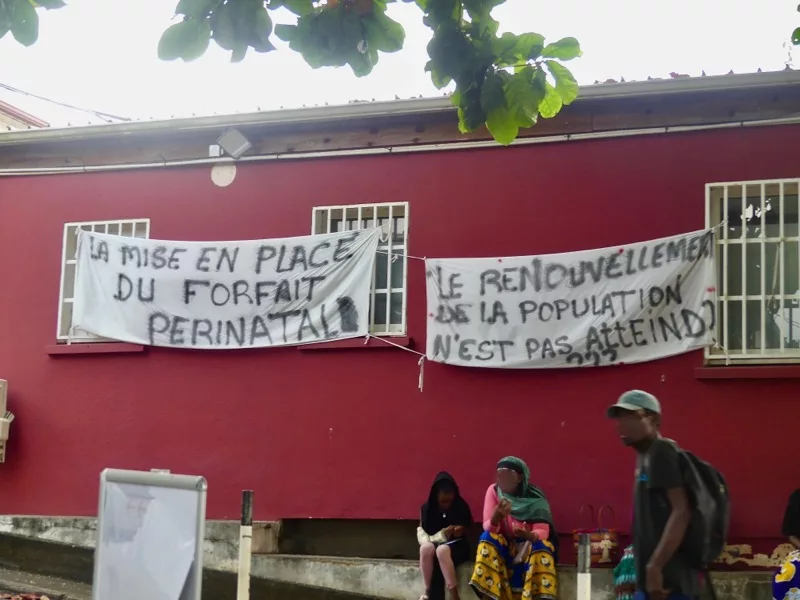 LA MISE EN PLACE
DU FORFAIT
PERINATAL
"LE RENOUVELLEMENT
DE LA POPULATION
N'EST PAS ATTEIND
???